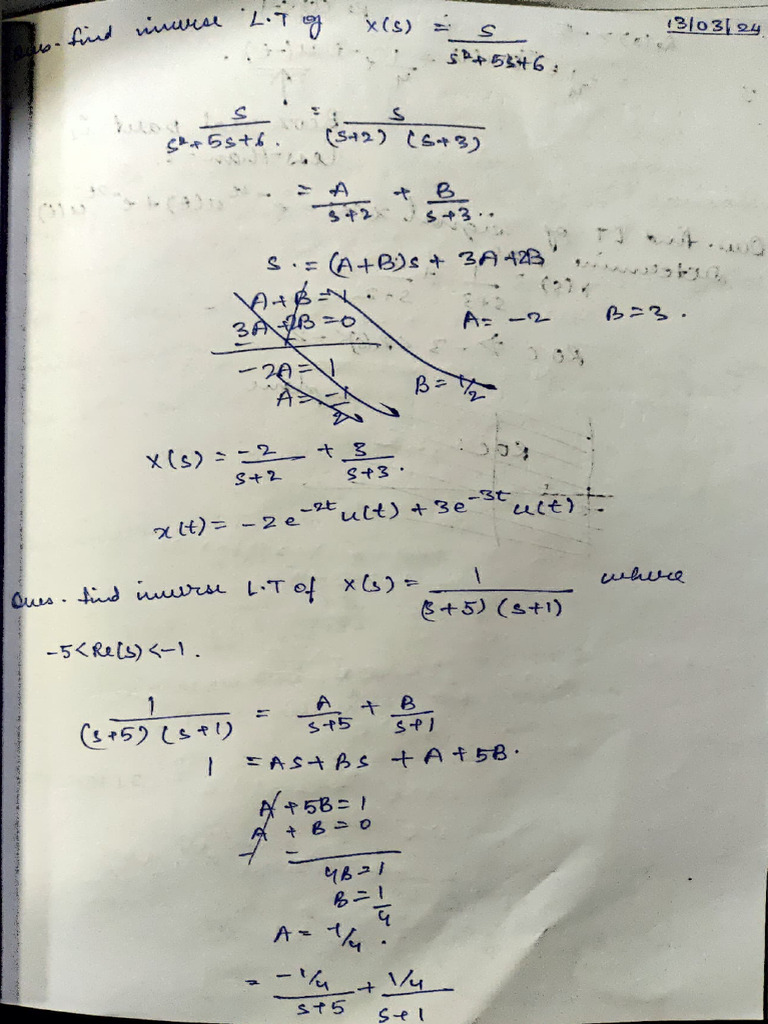 13/03/24
Ques. find inverse L.T of x(s) = s / s²+5s+6
s / s²+5s+6 = s / (s+2) (s+3)
= A / s+2 + B / s+3
s = (A+B)s + 3A+2B
A+B=1
3A+2B=0 A= -2 B=3.
-2A=1 B=1/2
A=-1/2
x(s) = -2 / s+2 + 3 / s+3.
x(t) = -2e^-2t u(t) + 3e^-3t u(t)
Ques. find inverse L.T of x(s) = 1 / (s+5) (s+1) where
-5<Re(s)<-1.
1 / (s+5) (s+1) = A / s+5 + B / s+1
1 = AS+BS + A+5B.
A+5B=1
A + B=0
4B=1
B=1/4
A= -1/4.
= -1/4 / s+5 + 1/4 / s+1